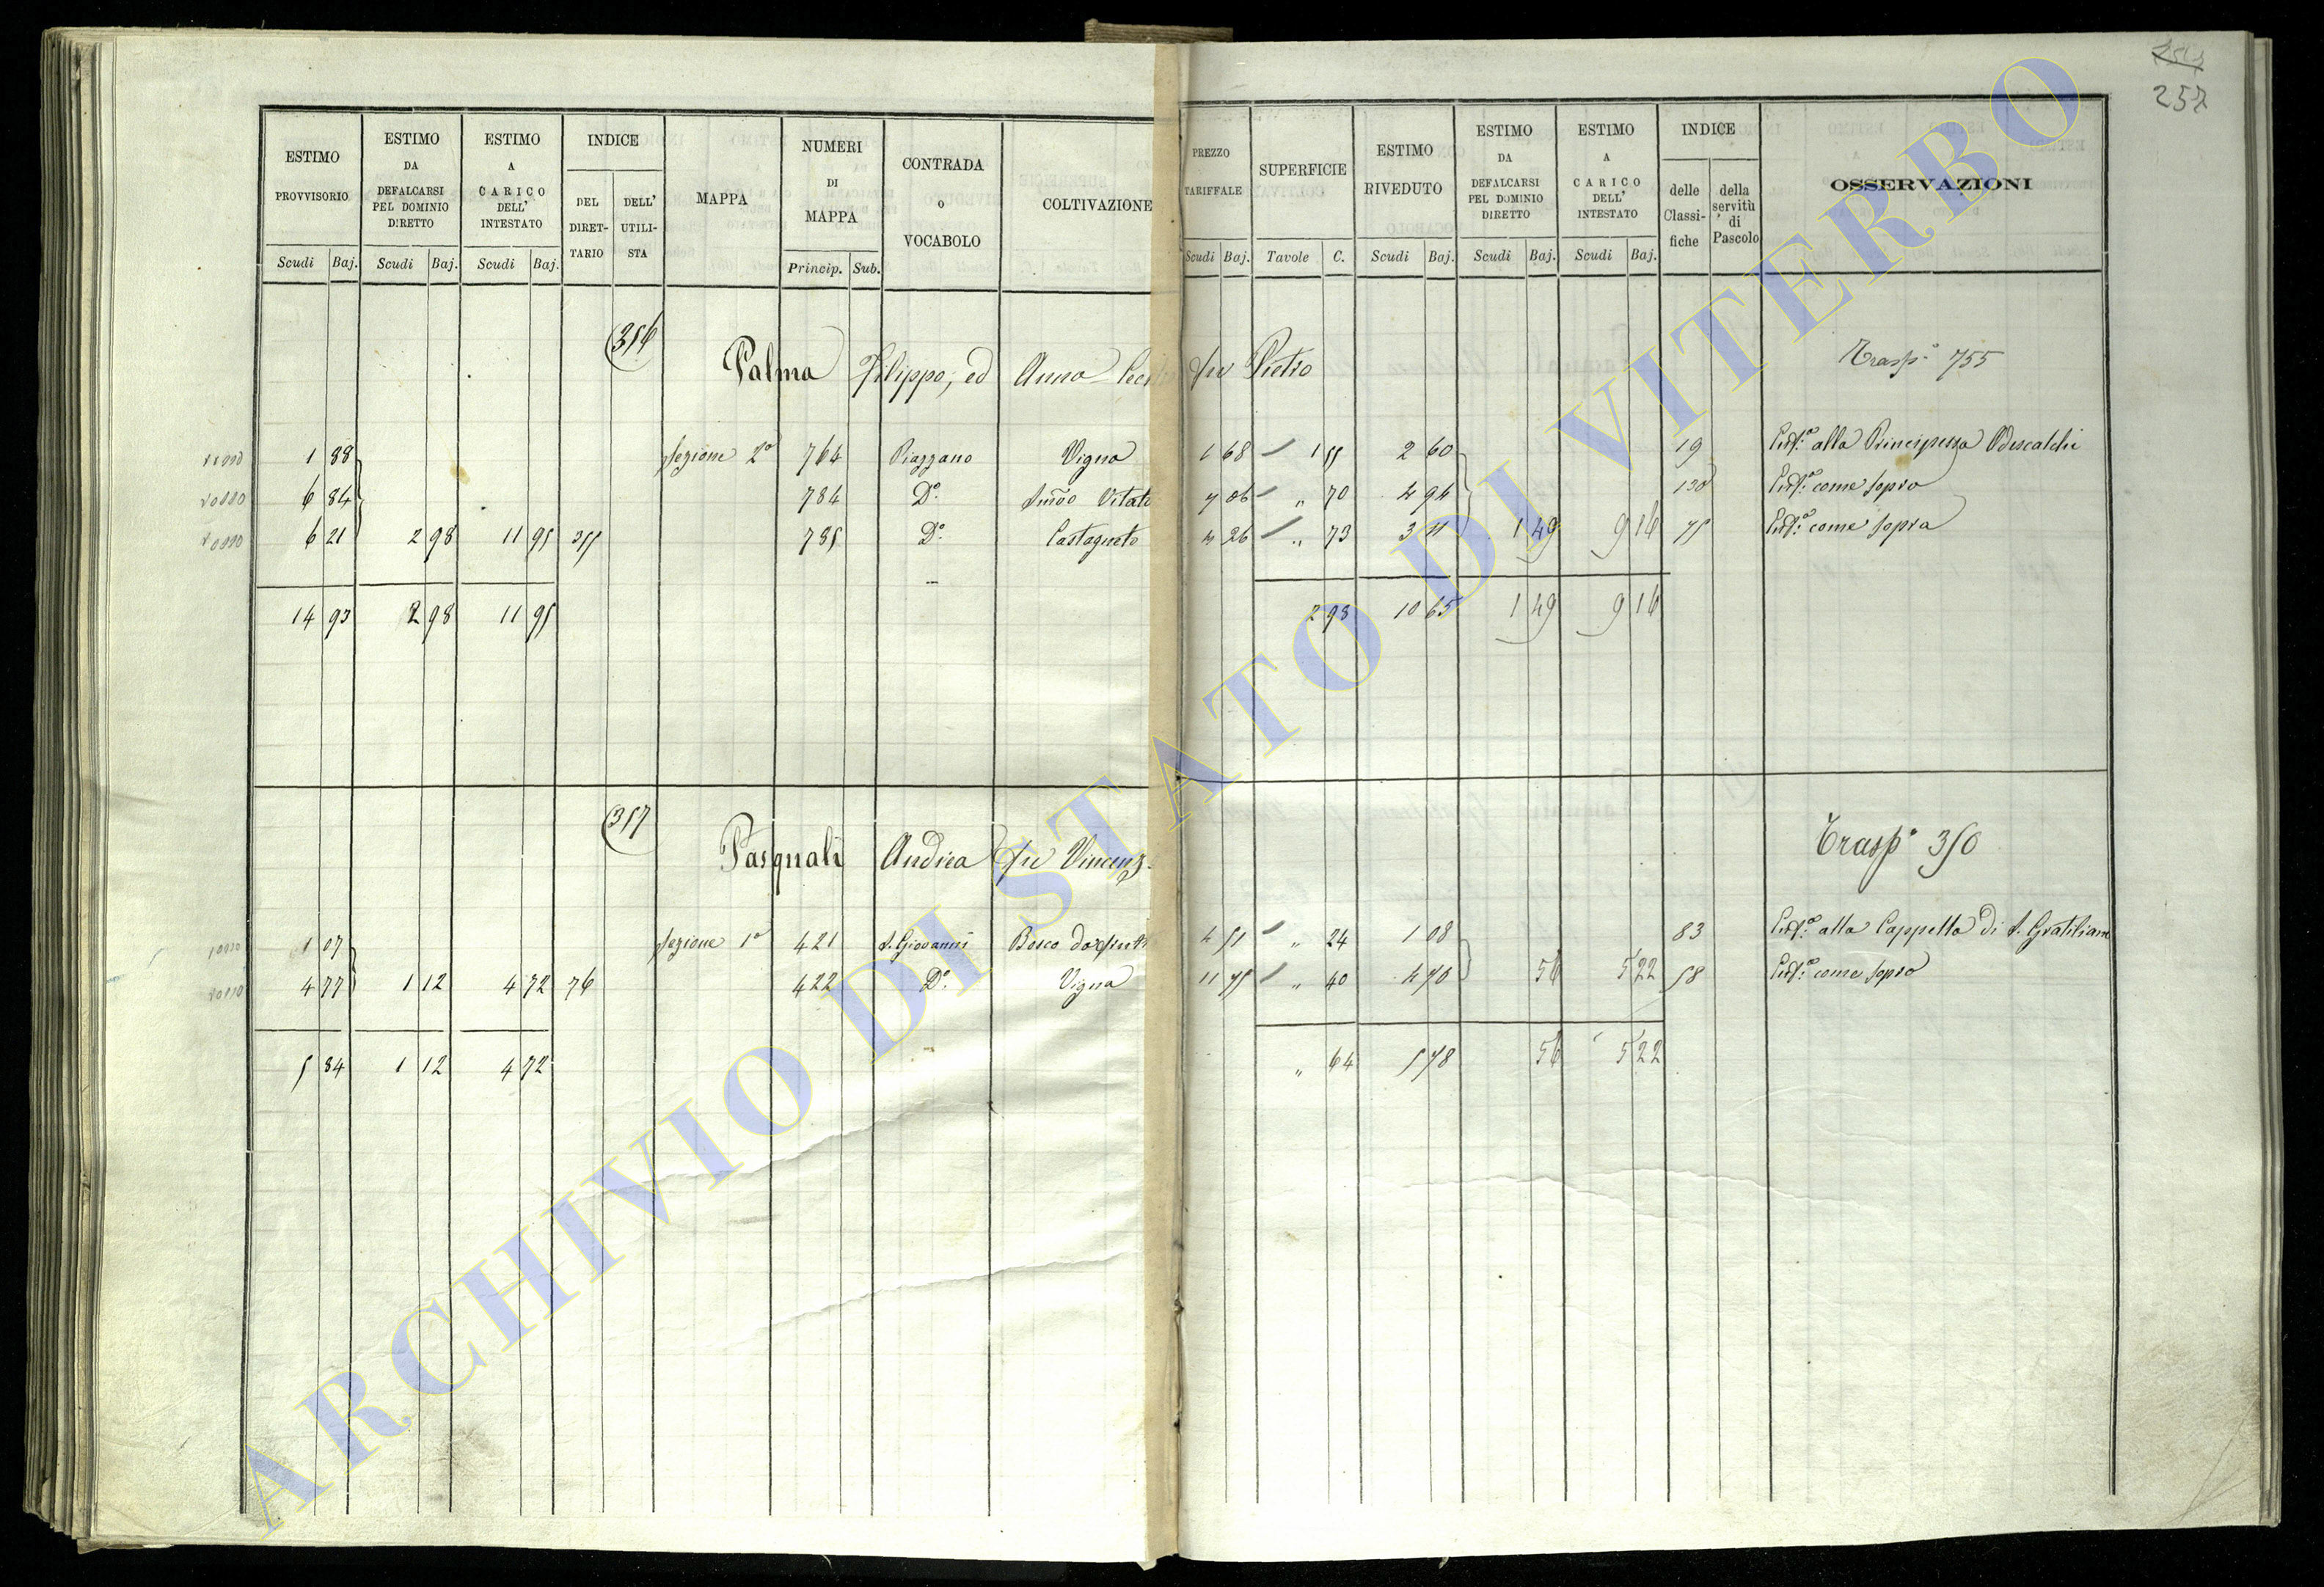 257
ESTIMO PROVVISORIO
ESTIMO DA DEFALCARSI PEL DOMINIO DIRETTO
ESTIMO A CARICO DELL' INTESTATO
INDICE
DEL DIRET-TARIO
DELL' UTILI-STA
MAPPA
NUMERI DI MAPPA
CONTRADA O VOCABOLO
COLTIVAZIONE
PREZZO TARIFFALE
SUPERFICIE
ESTIMO RIVEDUTO
ESTIMO DA DEFALCARSI PEL DOMINIO DIRETTO
ESTIMO A CARICO DELL' INTESTATO
INDICE
delle Classi-fiche
della servitù di Pascolo
OSSERVAZIONI
Scudi Baj. Scudi Baj. Scudi Baj. Princip. Sub. Scudi Baj. Tavole C. Scudi Baj. Scudi Baj. Scudi Baj.
356
Palma Filippo, ed Anna fu Pietro Trasp.o 755
1 88 Sezione 2a 764 Piazzano Vigna 1 68 1 55 2 60 19 Enf.a alla Principessa Odescalchi
6 84 784 Do. Vitato 7 06 " 70 4 94 Enf.a come sopra
6 21 2 98 11 95 355 785 Do. Castagneto 4 26 " 73 3 11 1 49 9 16 75 Enf.a come sopra
14 93 2 98 11 95 2 98 10 65 1 49 9 16
357
Pasquali Andrea fu Vincenz. Trasp.o 350
1 07 Sezione 1a 421 S. Giovanni Bosco da frutto 4 51 " 24 1 08 83 Enf.a alla Cappella di S. Gratiliano
4 77 1 12 4 72 76 422 Do. Vigna 11 75 " 40 4 70 56 5 22 58 Enf.a come sopra
5 84 1 12 4 72 " 64 5 78 56 5 22
ARCHIVIO DI STATO DI VITERBO